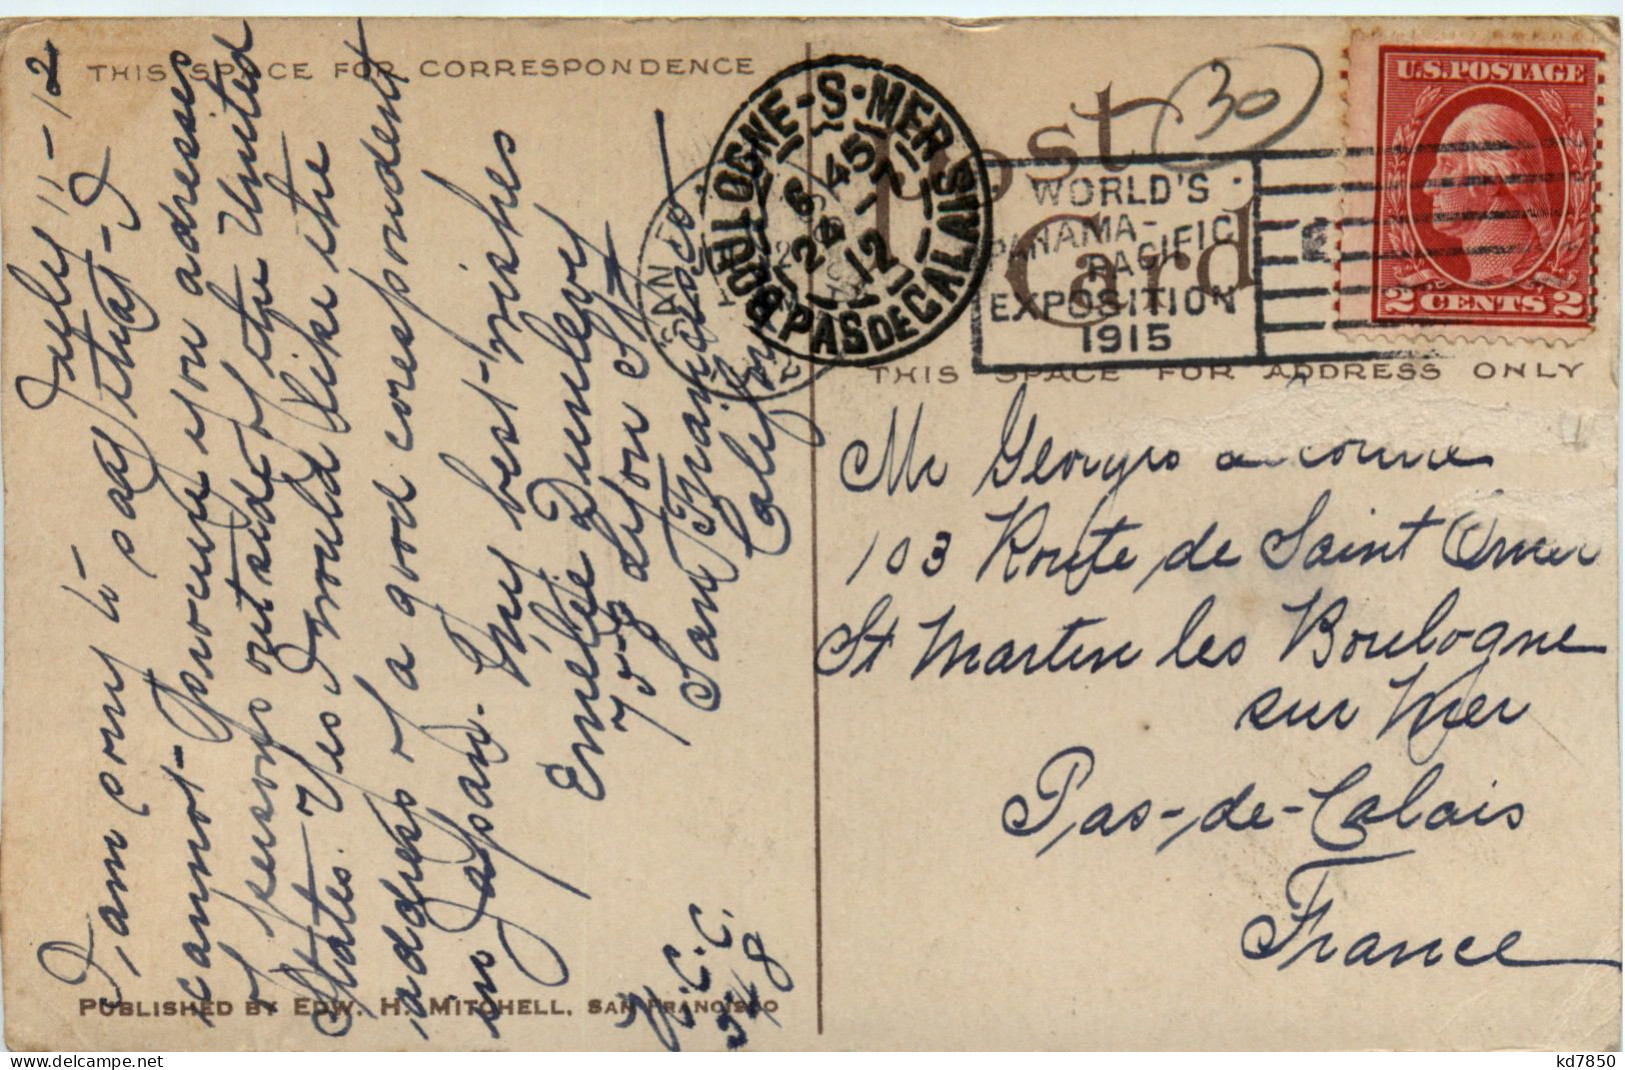 THIS SPACE FOR CORRESPONDENCE
July 11-12
I am sorry to say that I
cannot procure you adresses
of persons outside of the United
States. Yes I would like the
address of a good correspondent
in Japan. My best wishes
Emélie Dunlevy
San Francisco
California
PUBLISHED BY EDW. H. MITCHELL, SAN FRANCISCO
Post Card
30
BOULOGNE-S-MER STATION
PAS DE CALAIS
6 45
2 - 8
12
SAN FRANCISCO
WORLD'S
PANAMA-
PACIFIC
EXPOSITION
1915
U.S. POSTAGE
2 CENTS 2
THIS SPACE FOR ADDRESS ONLY
Mr Georges
103 Route de Saint Omer
St Martin les Boulogne
sur Mer
Pas-de-Calais
France
kd7850